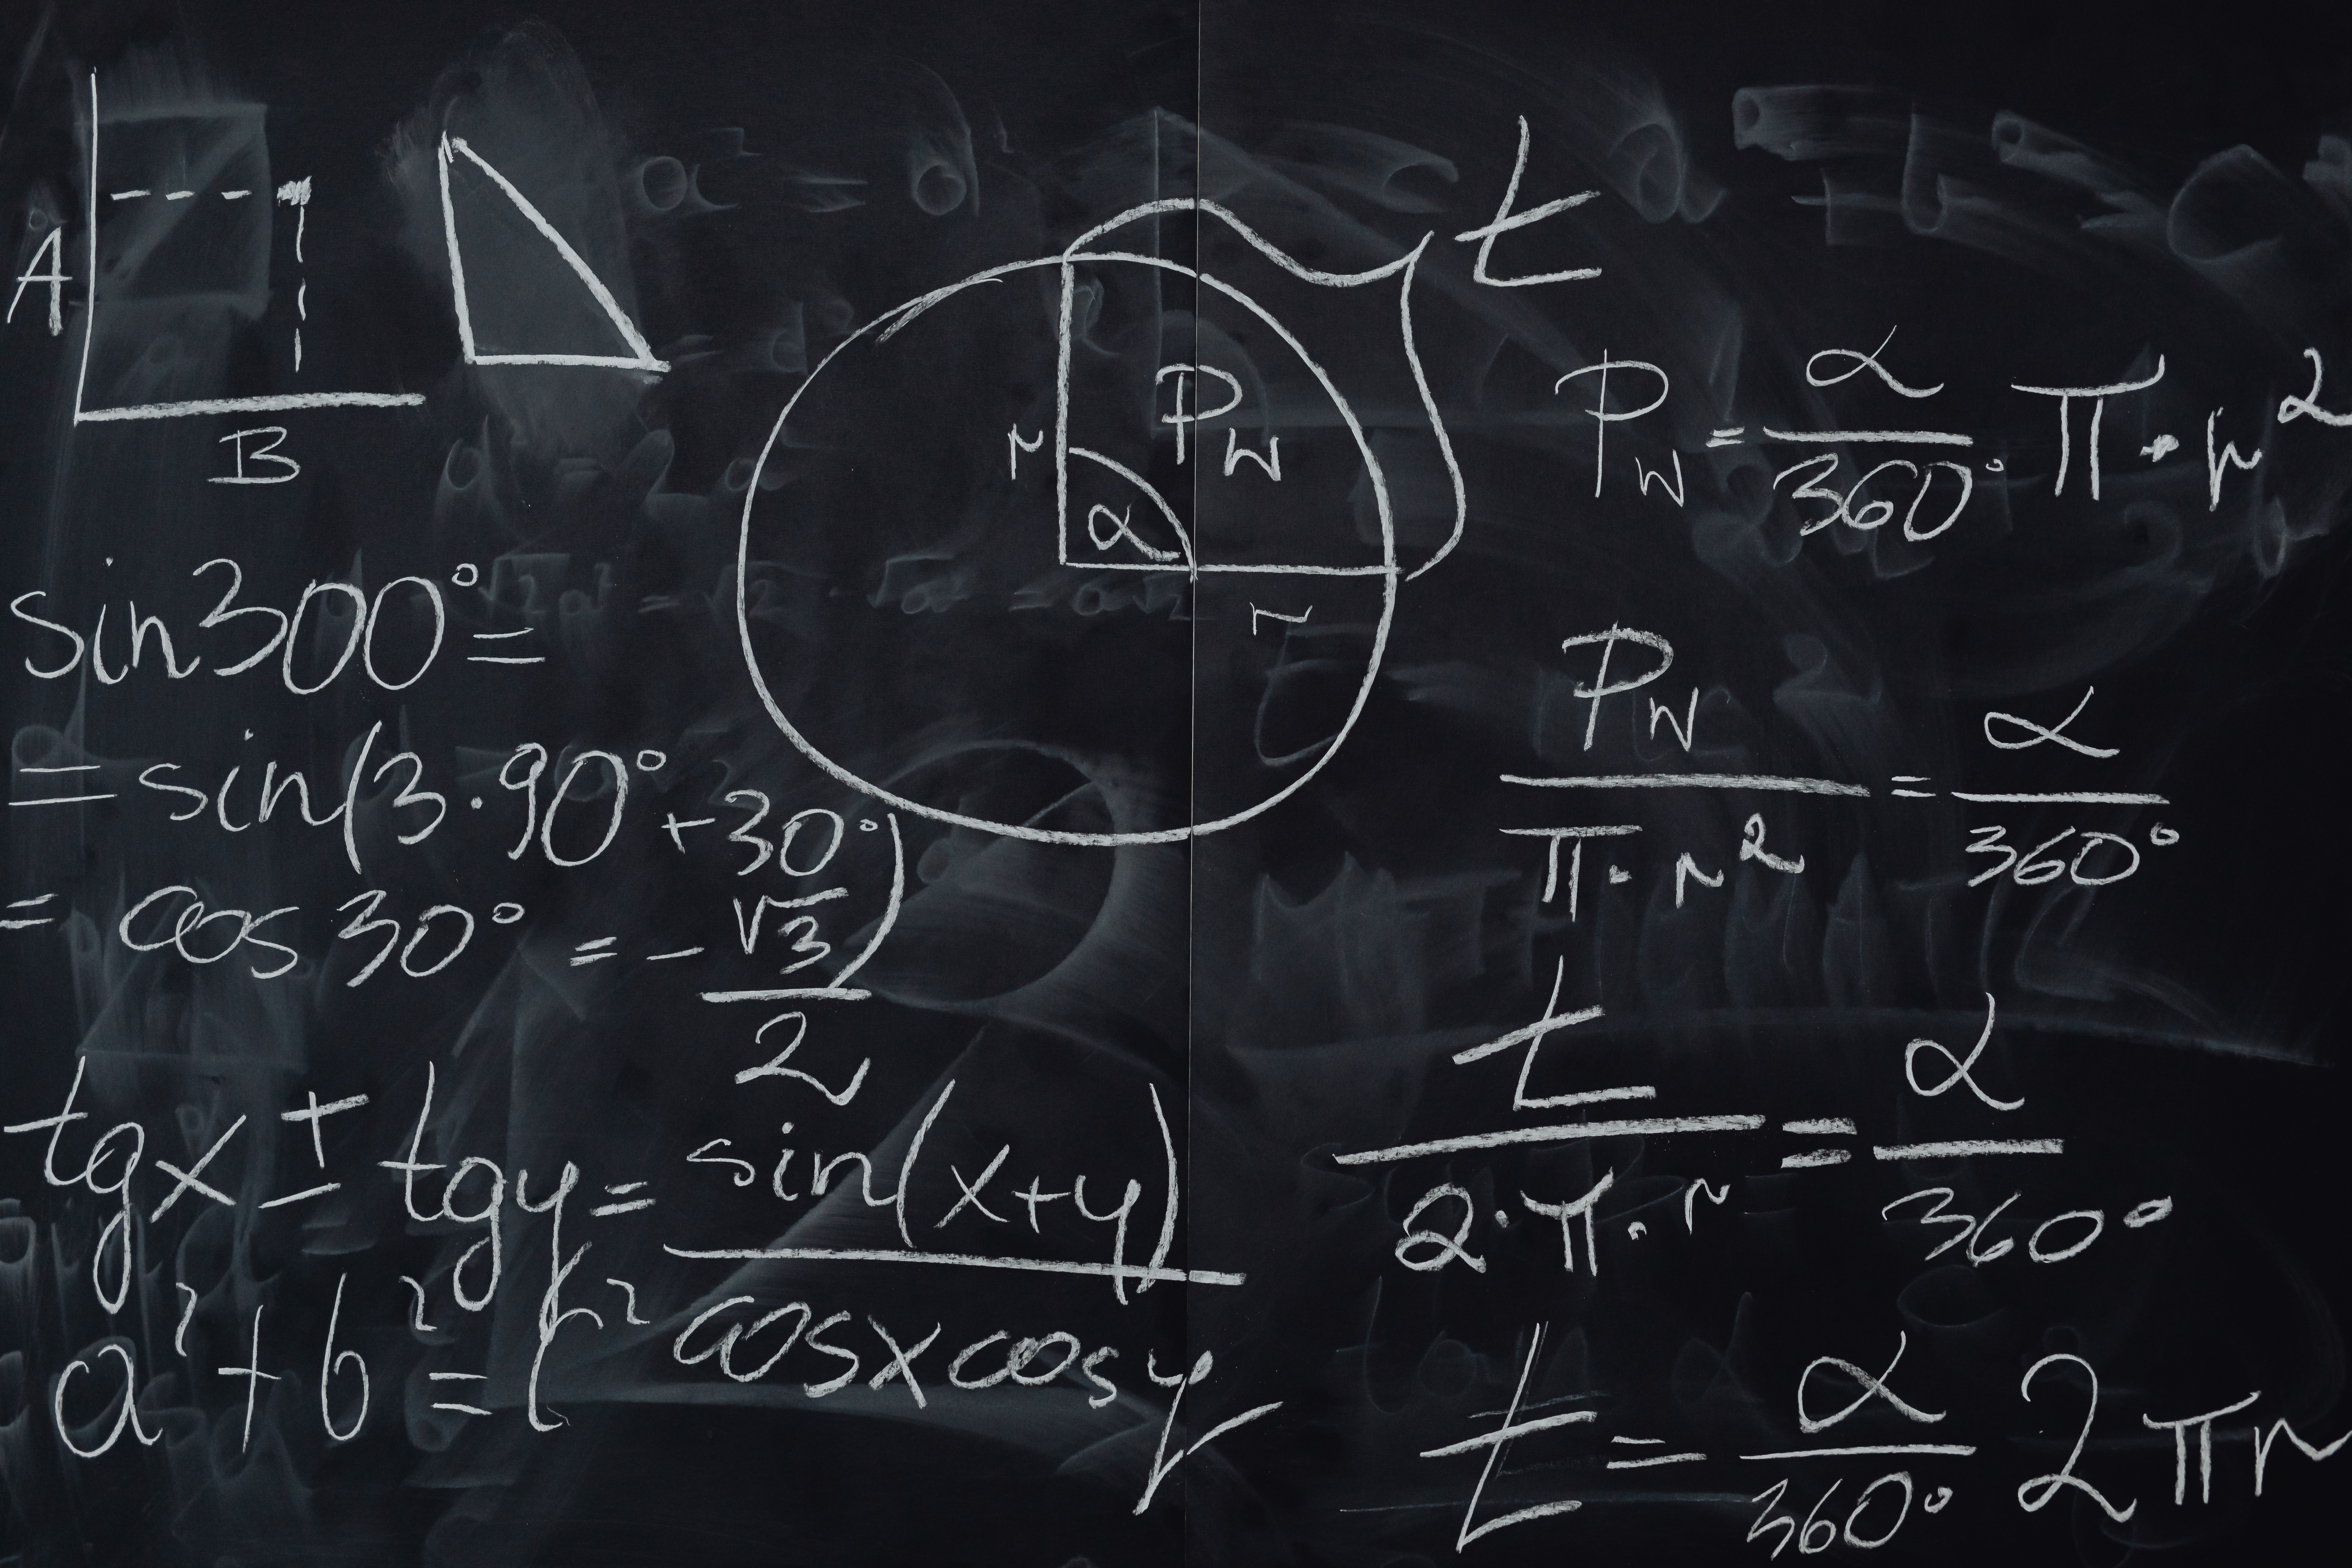 A
B
sin300°=
=sin(3·90°+30°)
= cos30° = -√3/2
tgx ± tgy = sin(x+y)/cosxcosy
a²+b²=c²
t
r
P_W
α
r
P_W = α/360° π·r²
P_W/π·r² = α/360°
t/2·π·r = α/360°
t = α/360° 2πr